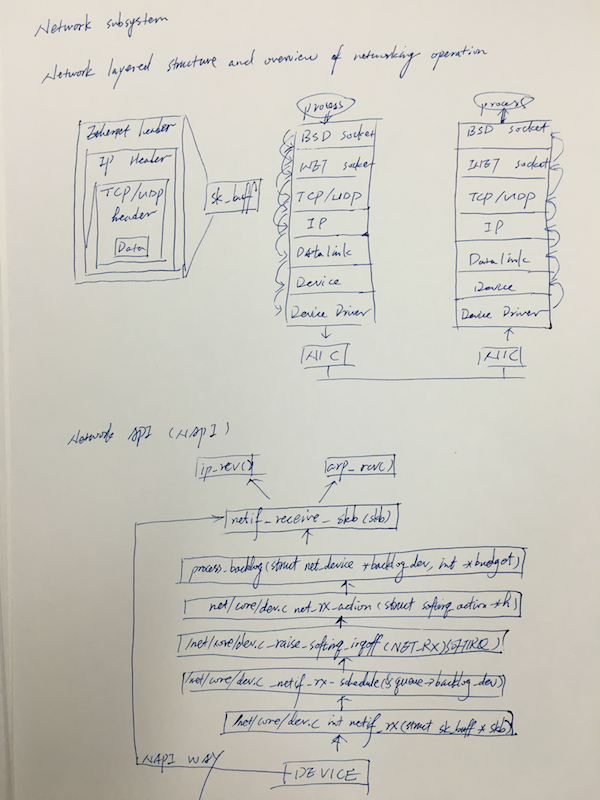 Network subsystem
Network layered structure and overview of networking operation
Ethernet header
IP Header
TCP/UDP
header
Data
sk_buff
process
BSD socket
INET socket
TCP/UDP
IP
Datalink
Device
Device Driver
NIC
process
BSD socket
INET socket
TCP/UDP
IP
Datalink
Device
Device Driver
NIC
Network API (NAPI)
ip_rcv()
arp_rcv()
netif_receive_skb(skb)
process_backlog(struct net_device *backlog_dev, int *budget)
net/core/dev.c net_rx_action(struct softirq_action *h)
/net/core/dev.c_raise_softirq_irqoff(NET_RX)SOFTIRQ)
/net/core/dev.c_netif_rx_schedule(&queue->backlog_dev)
/net/core/dev.c int netif_rx(struct sk_buff *skb)
NAPI WAY
DEVICE